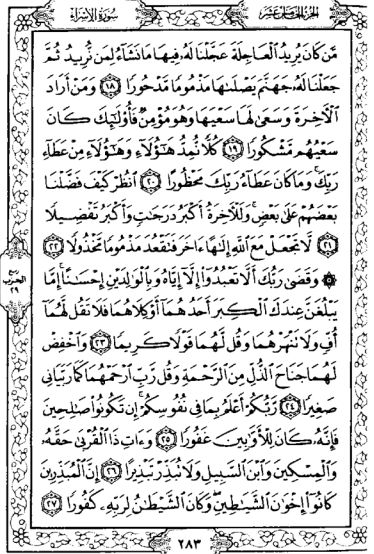 سُورَةُ الإِسْرَاءِ
الجُزْءُ الخَامِسَ عَشَرَ
مَّن كَانَ يُرِيدُ ٱلْعَاجِلَةَ عَجَّلْنَا لَهُۥ فِيهَا مَا نَشَآءُ لِمَن نُّرِيدُ ثُمَّ
جَعَلْنَا لَهُۥ جَهَنَّمَ يَصْلَىٰهَا مَذْمُومًا مَّدْحُورًا ١٨ وَمَنْ أَرَادَ
ٱلْءَاخِرَةَ وَسَعَىٰ لَهَا سَعْيَهَا وَهُوَ مُؤْمِنٌ فَأُو۟لَٰٓئِكَ كَانَ
سَعْيُهُم مَّشْكُورًا ١٩ كُلًّا نُّمِدُّ هَٰٓؤُلَآءِ وَهَٰٓؤُلَآءِ مِنْ عَطَآءِ
رَبِّكَ ۚ وَمَا كَانَ عَطَآءُ رَبِّكَ مَحْظُورًا ٢٠ ٱنظُرْ كَيْفَ فَضَّلْنَا
بَعْضَهُمْ عَلَىٰ بَعْضٍ ۚ وَلَلْءَاخِرَةُ أَكْبَرُ دَرَجَٰتٍ وَأَكْبَرُ تَفْضِيلًا
٢١ لَّا تَجْعَلْ مَعَ ٱللَّهِ إِلَٰهًا ءَاخَرَ فَتَقْعُدَ مَذْمُومًا مَّخْذُولًا ٢٢
۞ وَقَضَىٰ رَبُّكَ أَلَّا تَعْبُدُوٓا۟ إِلَّآ إِيَّاهُ وَبِٱلْوَٰلِدَيْنِ إِحْسَٰنًا ۚ إِمَّا
يَبْلُغَنَّ عِندَكَ ٱلْكِبَرَ أَحَدُهُمَآ أَوْ كِلَاهُمَا فَلَا تَقُل لَّهُمَآ
أُفٍّ وَلَا تَنْهَرْهُمَا وَقُل لَّهُمَا قَوْلًا كَرِيمًا ٢٣ وَٱخْفِضْ
لَهُمَا جَنَاحَ ٱلذُّلِّ مِنَ ٱلرَّحْمَةِ وَقُل رَّبِّ ٱرْحَمْهُمَا كَمَا رَبَّيَانِى
صَغِيرًا ٢٤ رَّبُّكُمْ أَعْلَمُ بِمَا فِى نُفُوسِكُمْ ۚ إِن تَكُونُوا۟ صَٰلِحِينَ
فَإِنَّهُۥ كَانَ لِلْأَوَّٰبِينَ غَفُورًا ٢٥ وَءَاتِ ذَا ٱلْقُرْبَىٰ حَقَّهُۥ
وَٱلْمِسْكِينَ وَٱبْنَ ٱلسَّبِيلِ وَلَا تُبَذِّرْ تَبْذِيرًا ٢٦ إِنَّ ٱلْمُبَذِّرِينَ
كَانُوٓا۟ إِخْوَٰنَ ٱلشَّيَٰطِينِ ۖ وَكَانَ ٱلشَّيْطَٰنُ لِرَبِّهِۦ كَفُورًا ٢٧
ربع
الحزب
٢٩
٢٨٣